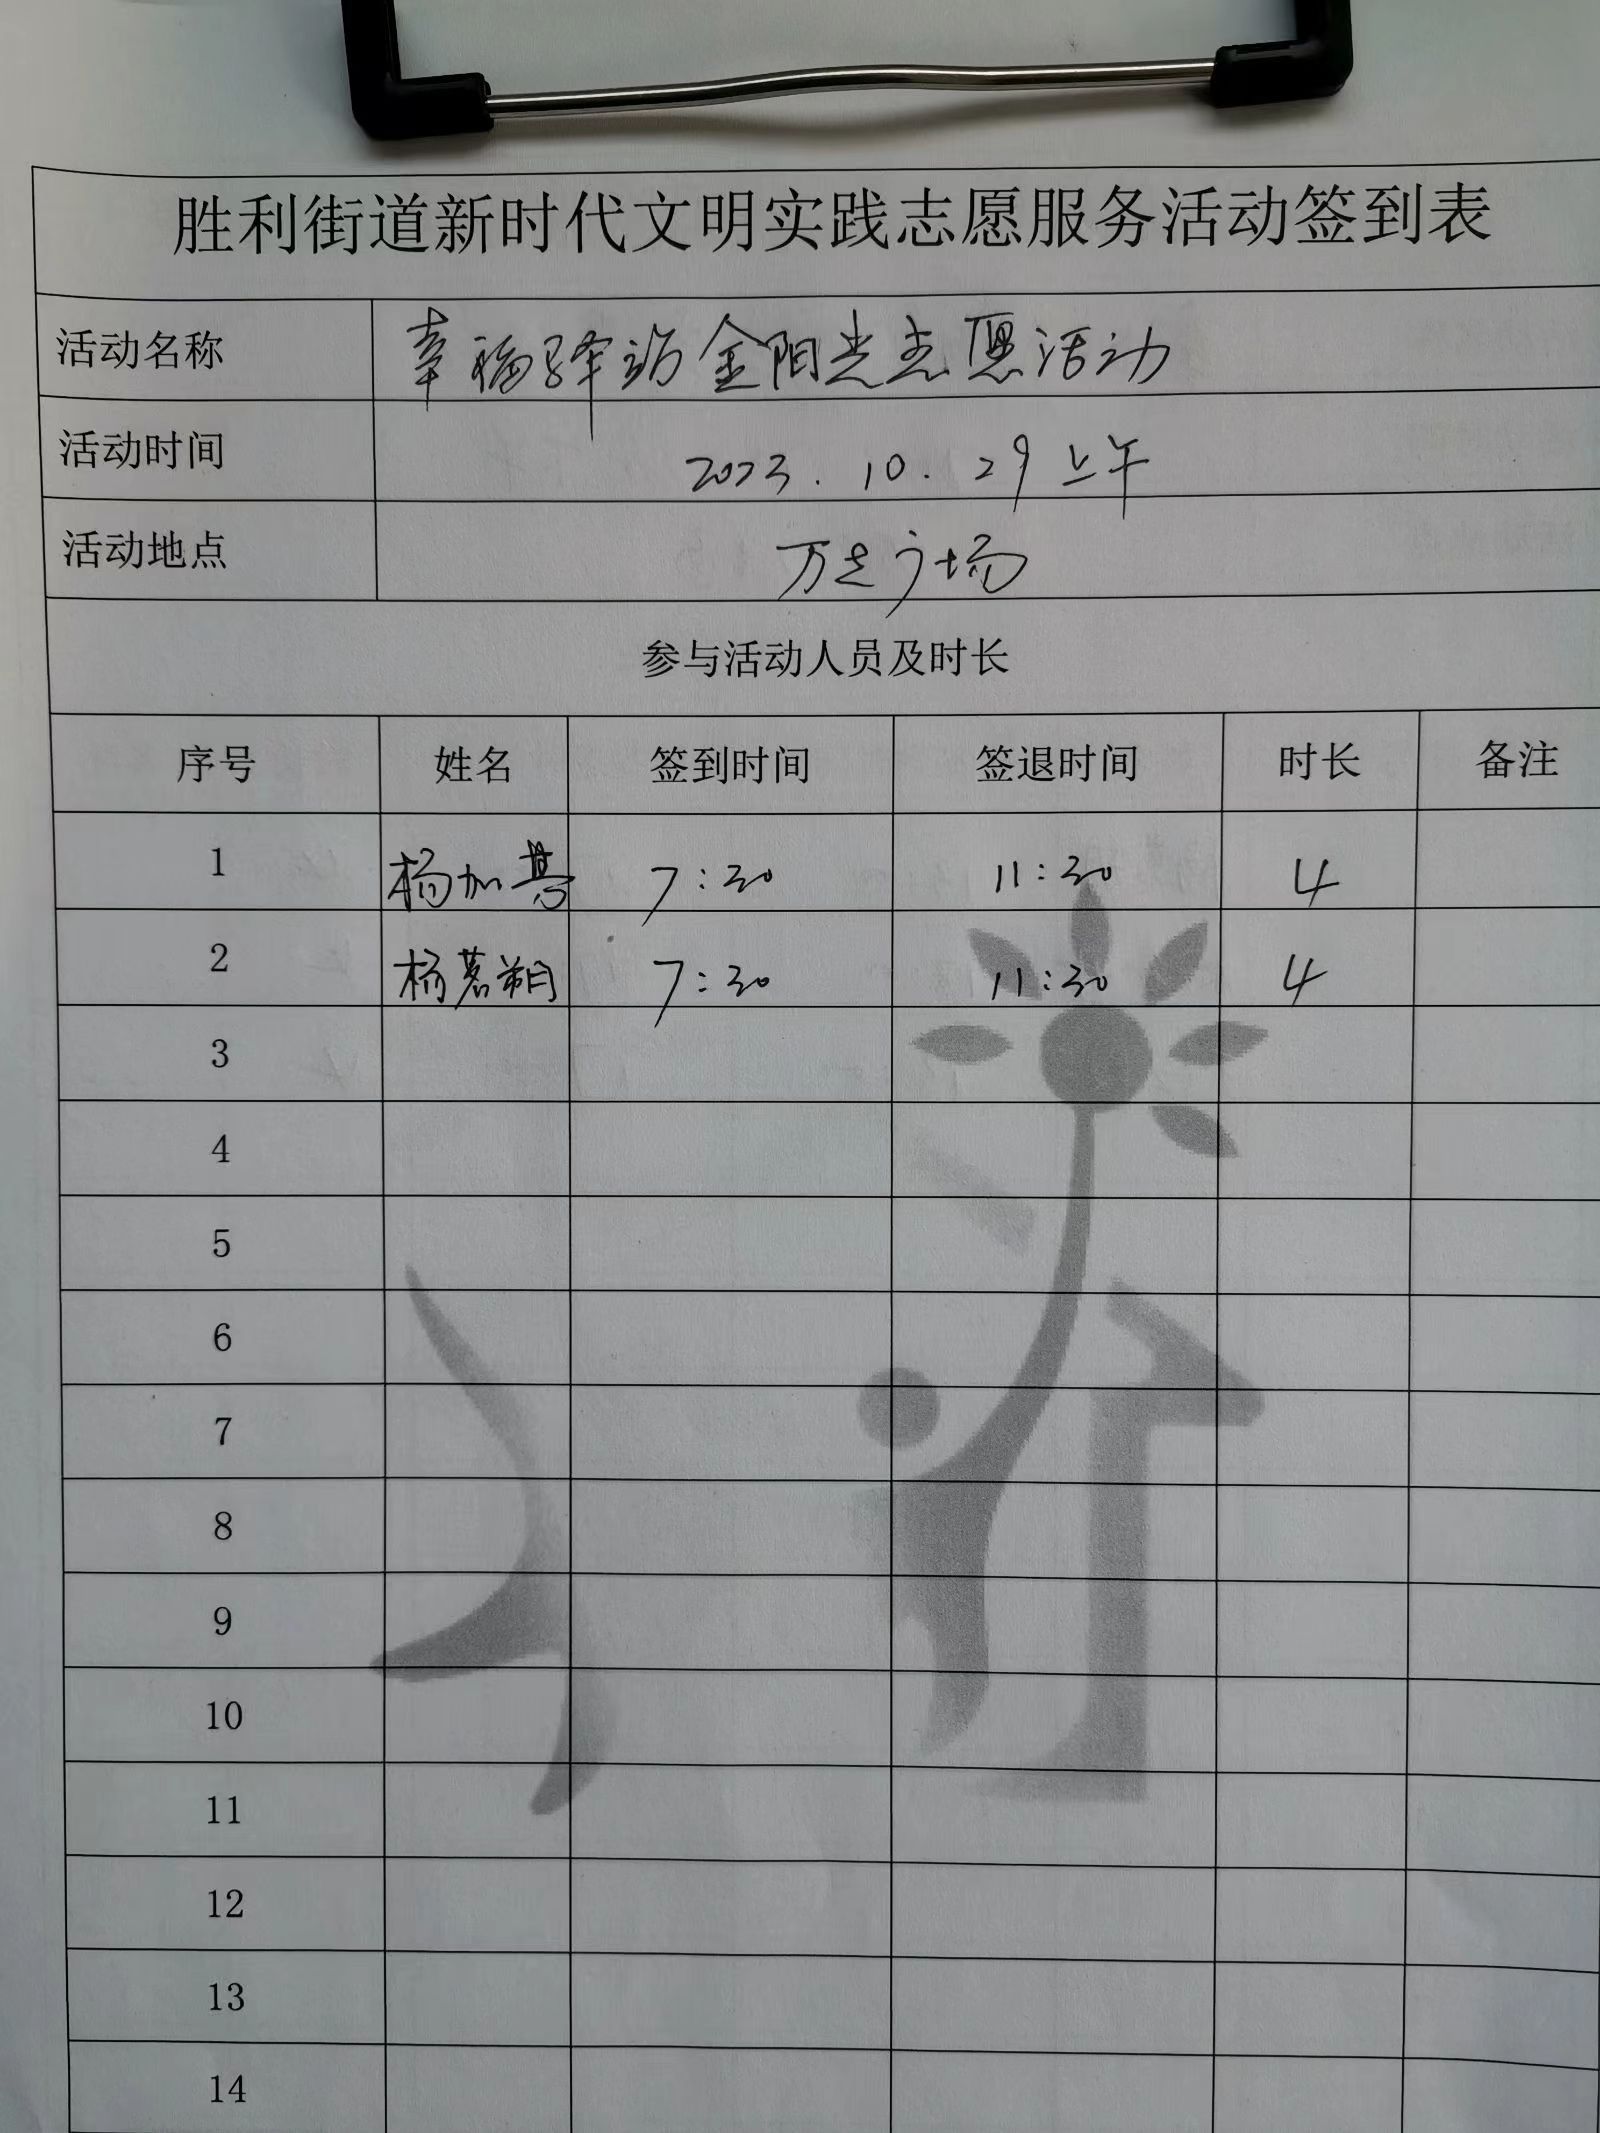 胜利街道新时代文明实践志愿服务活动签到表
活动名称 幸福驿站金阳光志愿活动
活动时间 2023.10.29上午
活动地点 万达广场
参与活动人员及时长
序号 姓名 签到时间 签退时间 时长 备注
1 杨加 7:30 11:30 4
2 杨茗朔 7:30 11:30 4
3
4
5
6
7
8
9
10
11
12
13
14